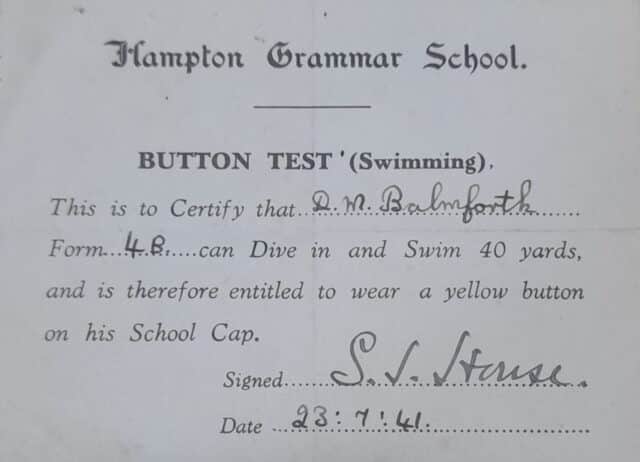 Hampton Grammar School.
BUTTON TEST '(Swimming).
This is to Certify that...D. M. Balmforth......
Form...4.B.....can Dive in and Swim 40 yards,
and is therefore entitled to wear a yellow button
on his School Cap.
Signed......S. J. House.
Date ...23:7:41...................